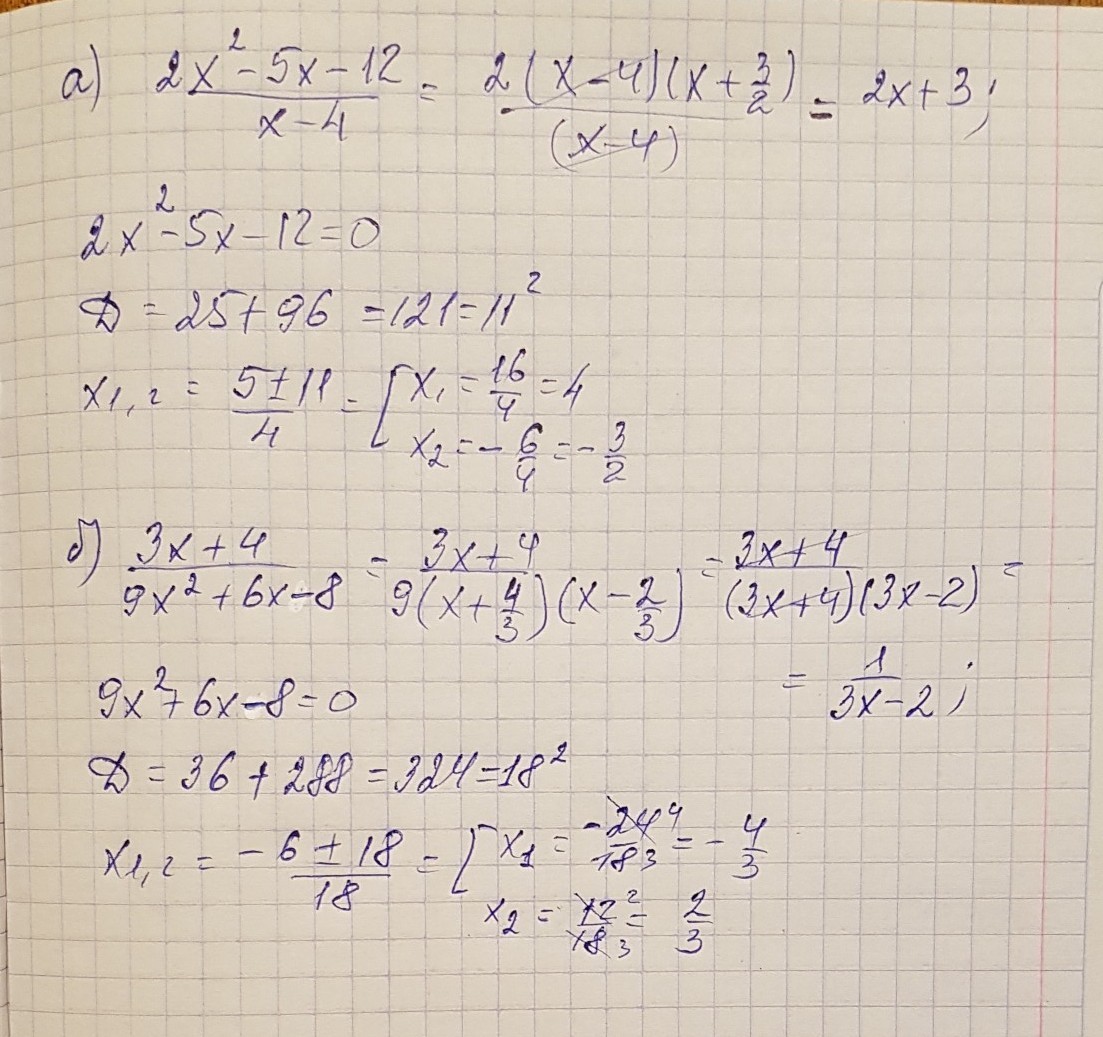 а) (2x² - 5x - 12)/(x - 4) = 2(x - 4)(x + 3/2)/(x - 4) = 2x + 3;
2x² - 5x - 12 = 0
D = 25 + 96 = 121 = 11²
x1,2 = (5 ± 11)/4 = [ x₁ = 16/4 = 4
x₂ = - 6/4 = - 3/2
б) (3x + 4)/(9x² + 6x - 8) = (3x + 4)/(9(x + 4/3)(x - 2/3)) = (3x + 4)/((3x + 4)(3x - 2)) =
= 1/(3x - 2);
9x² + 6x - 8 = 0
D = 36 + 288 = 324 = 18²
x1,2 = (-6 ± 18)/18 = [ x₁ = -24 4/18 3 = - 4/3
x₂ = 12 2/18 3 = 2/3